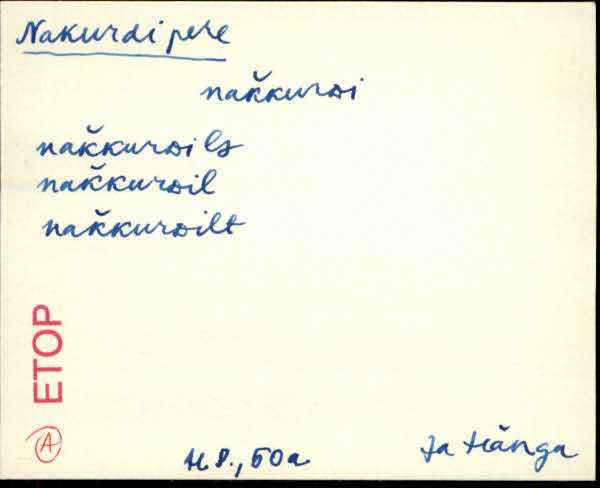 Nakurdi pere
nak̆kurᴅi
nak̆kurᴅilɜ
nak̆kurᴅil
nak̆kurᴅilt
ETOP
A
H P., 50 a
Ja Hänga